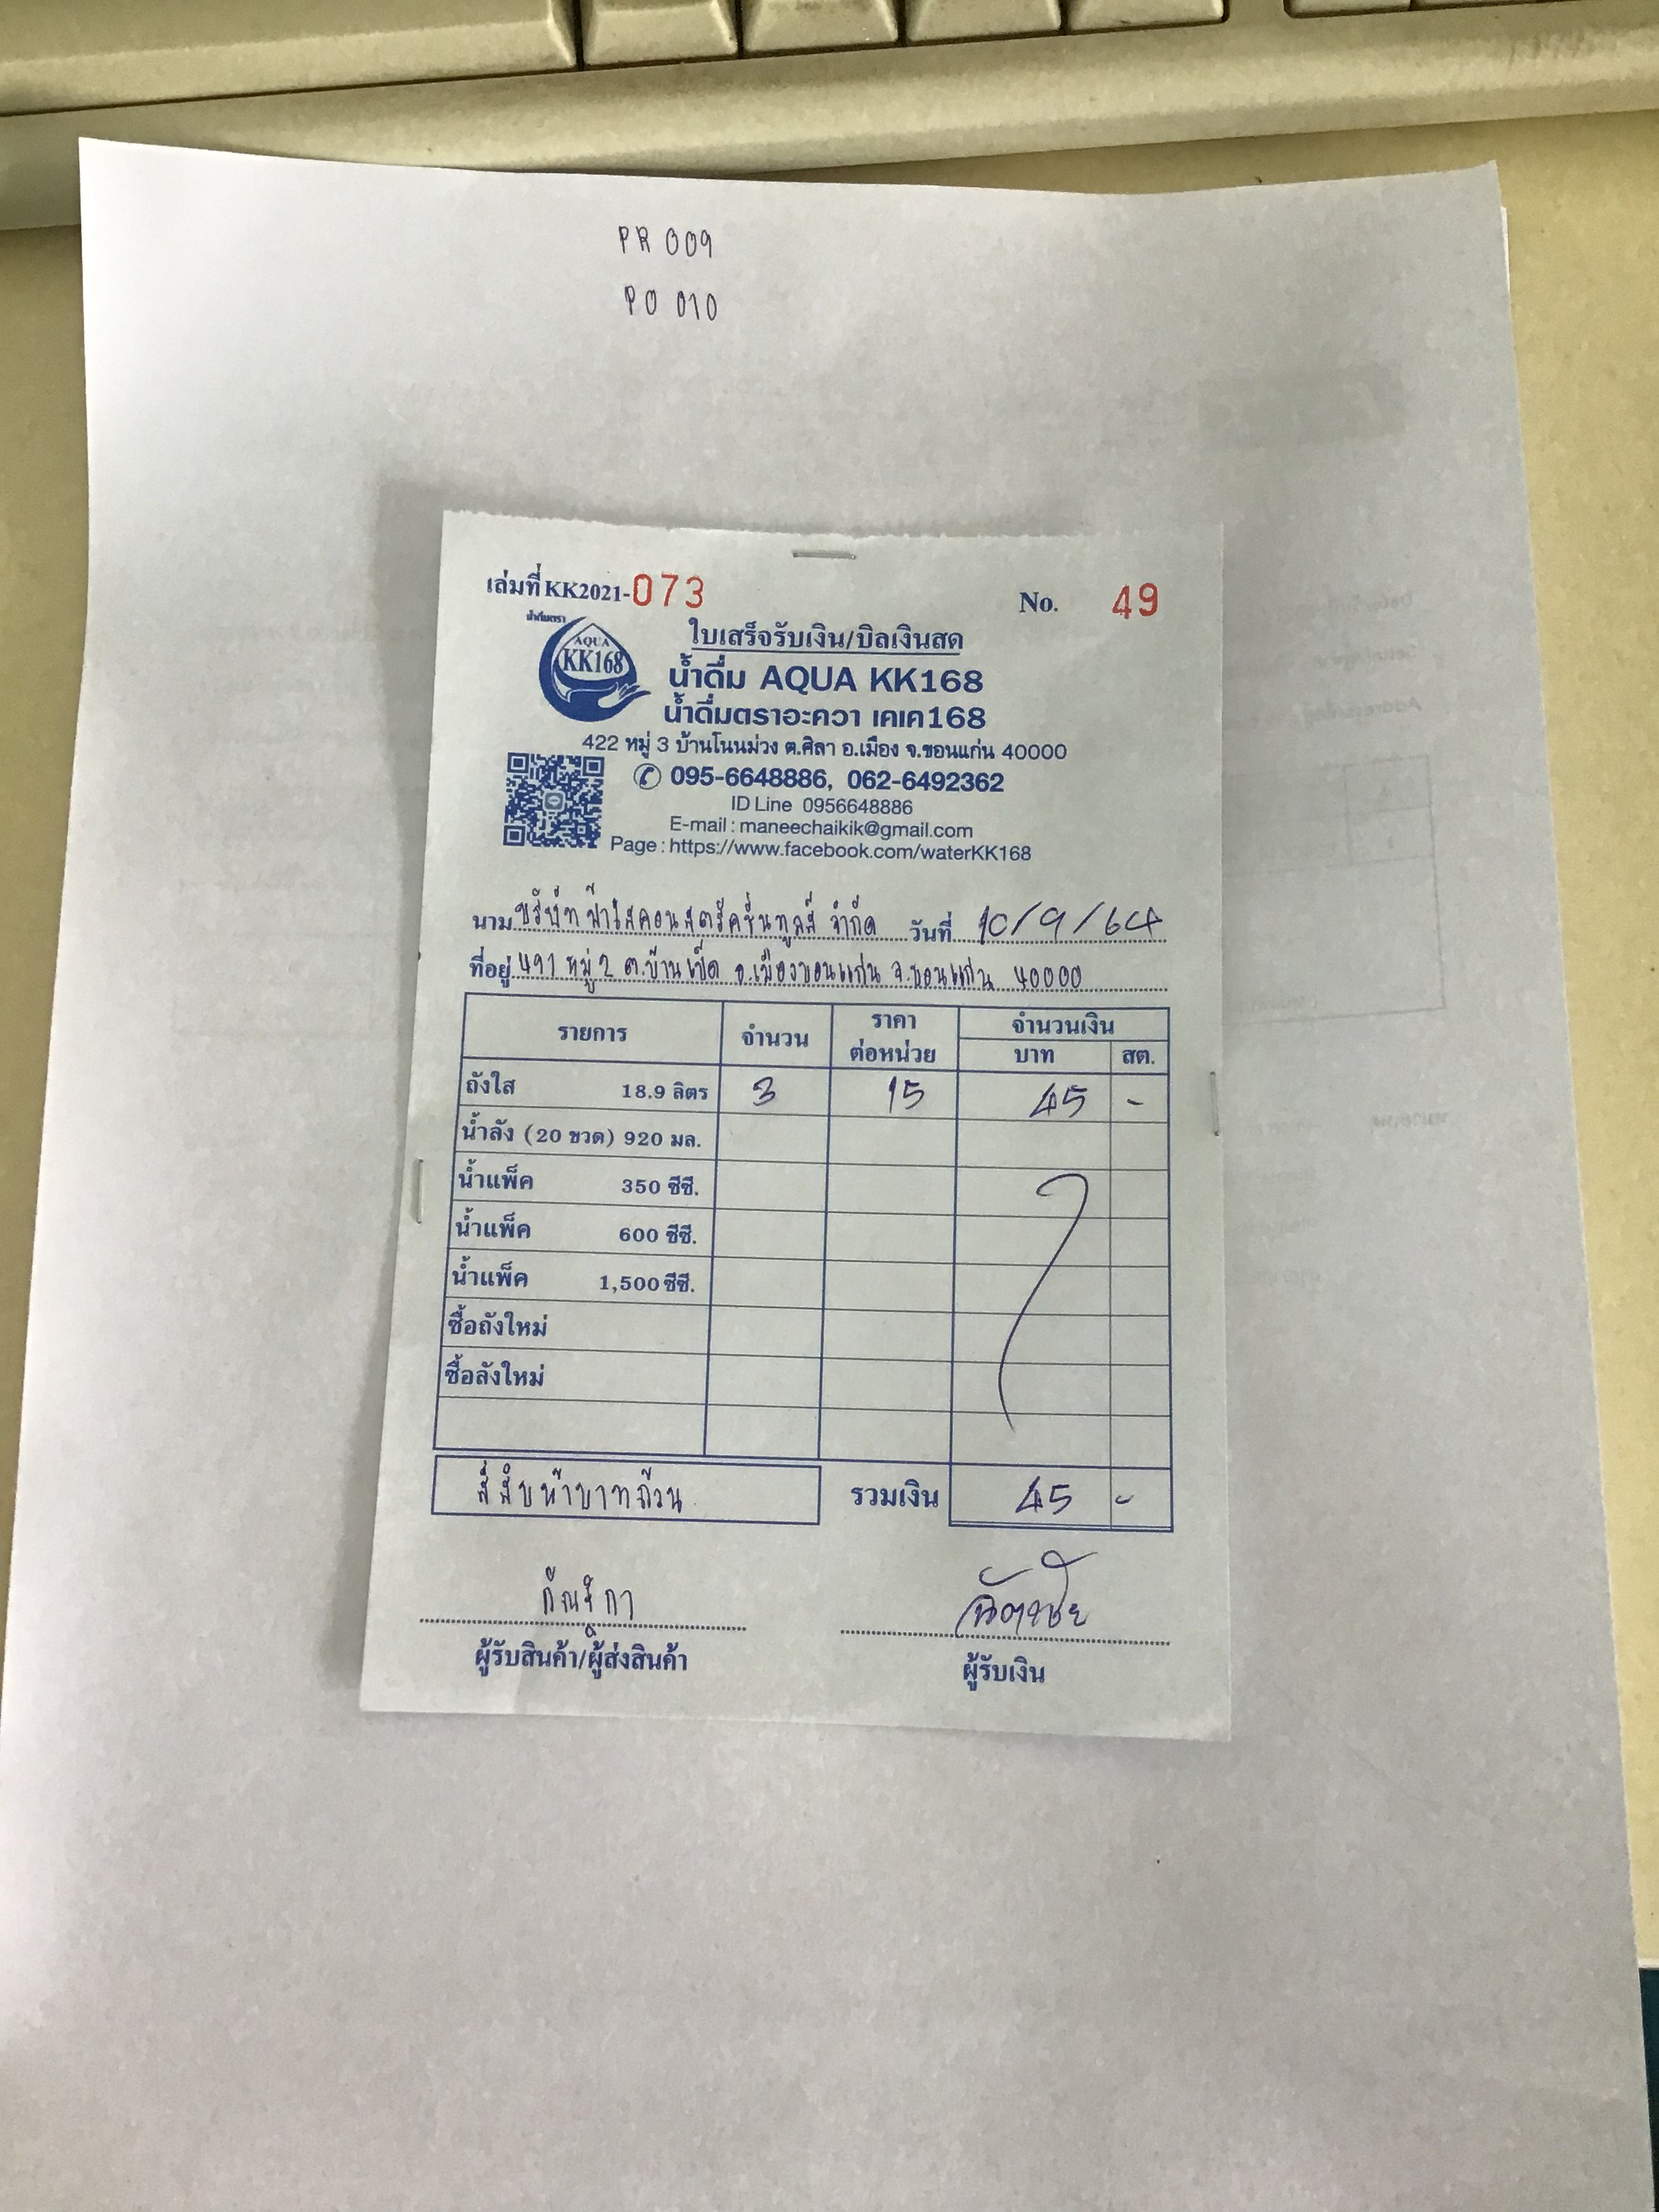 PR 009
PO 010
เล่มที่ KK2021-073
No. 49
ใบเสร็จรับเงิน/บิลเงินสด
AQUA
KK168
น้ำดื่ม AQUA KK168
น้ำดื่มตราอะควา เคเค168
422 หมู่ 3 บ้านโนนม่วง ต.ศิลา อ.เมือง จ.ขอนแก่น 40000
095-6648886, 062-6492362
ID Line 0956648886
E-mail : maneechaikik@gmail.com
Page : https://www.facebook.com/waterKK168
นาม บริษัท ฟาใสคอนสตรัคชั่น จำกัด วันที่ 10/9/64
ที่อยู่ หมู่ 2 ต.บ้านเป็ด อ.เมืองขอนแก่น จ.ขอนแก่น 40000
รายการ จำนวน ราคาต่อหน่วย จำนวนเงิน
บาท สต.
ถังใส 18.9 ลิตร 3 15 45 -
น้ำลัง (20 ขวด) 920 มล.
น้ำแพ็ค 350 ซีซี.
น้ำแพ็ค 600 ซีซี.
น้ำแพ็ค 1,500 ซีซี.
ซื้อถังใหม่
ซื้อลังใหม่
สี่สิบห้าบาทถ้วน รวมเงิน 45 -
กัณริกา
ผู้รับสินค้า/ผู้ส่งสินค้า ผู้รับเงิน